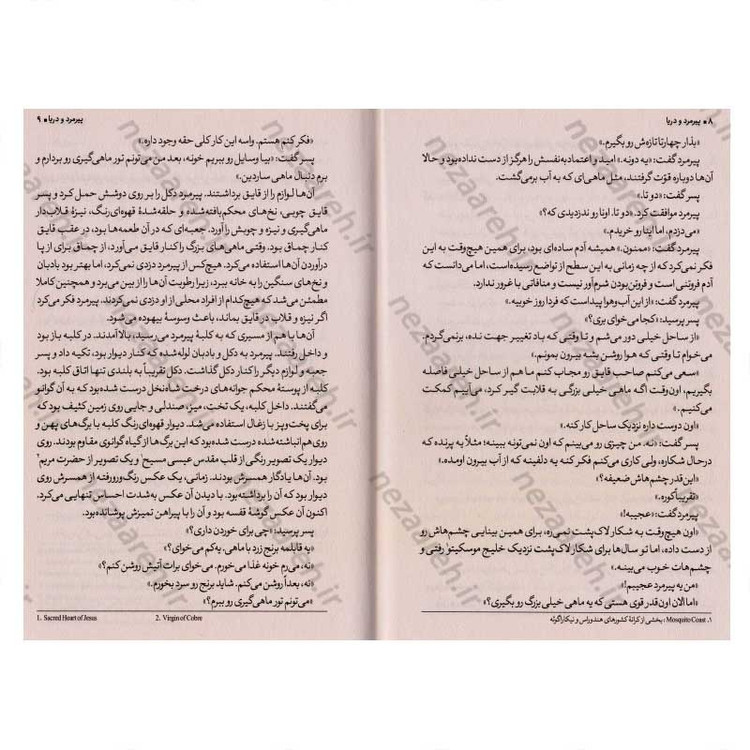 ۸ • پیرمرد و دریا
«بذار چهارتا تازه‌ش رو بگیرم.»
پیرمرد گفت: «یه دونه.» امید و اعتمادبه‌نفسش را هرگز از دست نداده بود و حالا
آن‌ها دوباره قوّت گرفتند، مثل ماهی‌ای که به آب برمی‌گشت.
پسر گفت: «دو تا.»
پیرمرد موافقت کرد. «دو تا. اونا رو ندزدیدی که؟»
«می‌دزدم، اما اینا رو خریدم.»
پیرمرد گفت: «ممنون.» همیشه آدم ساده‌ای بود، برای همین هیچ‌وقت به این
فکر نمی‌کرد که از چه زمانی به این سطح از تواضع رسیده‌است، اما می‌دانست که
آدم فروتنی است و فروتن‌بودن شرم‌آور نیست و منافاتی با غرور ندارد.
پیرمرد گفت: «از این آب‌وهوا پیداست که فردا روز خوبیه.»
پسر پرسید: «کجا می‌خوای بری؟»
«از ساحل خیلی دور می‌شم و تا وقتی که باد تغییر جهت نده، برنمی‌گردم.
می‌خوام تا وقتی که هوا روشن بشه بیرون بمونم.»
«سعی می‌کنم صاحب قایق رو مجاب کنم ما هم از ساحل خیلی فاصله
بگیریم. اون‌وقت اگه ماهی خیلی بزرگی به قلابت گیر کرد، می‌آییم کمکت
می‌کنیم.»
«اون دوست داره نزدیک ساحل کار کنه.»
پسر گفت: «نه. من چیزی رو می‌بینم که اون نمی‌تونه ببینه؛ مثلاً یه پرنده که
درحال شکاره، ولی کاری می‌کنم فکر کنه یه دلفینه که از آب بیرون اومده.»
«این‌قدر چشم‌هاش ضعیفه؟»
«تقریباً کوره.»
پیرمرد گفت: «عجیبه!»
«اون هیچ‌وقت به شکار لاک‌پشت نمی‌ره، برای همین بینایی چشم‌هاش رو
از دست داده، اما تو سال‌ها برای شکار لاک‌پشت نزدیک خلیج موسکیتو رفتی و
چشم‌هات خوب می‌بینه.»
«من یه پیرمرد عجیبم!»
«اما الان اون‌قدر قوی هستی که یه ماهی خیلی بزرگ رو بگیری؟»
۱. Mosquito Coast: بخشی از کرانهٔ کشورهای هندوراس و نیکاراگوئه
پیرمرد و دریا • ۹
«فکر کنم هستم. واسه این کار کلی حقه وجود داره.»
پسر گفت: «بیا وسایل رو ببریم خونه، بعد من می‌تونم تور ماهی‌گیری رو بردارم و
برم دنبال ماهی ساردین.»
آن‌ها لوازم را از قایق برداشتند. پیرمرد دکل را بر روی دوشش حمل کرد و پسر
قایق چوبی، نخ‌های محکم‌بافته‌شده و حلقه‌شدهٔ قهوه‌ای‌رنگ، نیزهٔ قلاب‌دار
ماهی‌گیری و نیزه و چوبش را آورد. جعبه‌ای که در آن طعمه‌ها بود، در عقب قایق
کنار چماق بود. وقتی ماهی‌های بزرگ را کنار قایق می‌آورد، از چماق برای از پا
درآوردن آن‌ها استفاده می‌کرد. هیچ‌کس از پیرمرد دزدی نمی‌کرد، اما بهتر بود بادبان
و نخ‌های سنگین را به خانه ببرد، زیرا رطوبت آن‌ها را از بین می‌برد و همچنین کاملا
مطمئن می‌شد که هیچ‌کدام از افراد محلی از او دزدی نمی‌کردند. پیرمرد فکر می‌کرد
اگر نیزه و قلاب در قایق بماند، باعث وسوسهٔ بیهوده می‌شود.
آن‌ها با هم از مسیری که به کلبهٔ پیرمرد می‌رسید، بالا آمدند. در کلبه باز بود
و داخل رفتند. پیرمرد به دکل و بادبان لوله‌شده که کنار دیوار بود، تکیه داد و پسر
جعبه و لوازم دیگر را کنار دکل گذاشت. دکل تقریباً به بلندی تنها اتاق کلبه بود.
کلبه از پوستهٔ محکم جوانه‌های درخت شاه‌نخل درست شده‌بود که به آن گوانو
می‌گفتند. داخل کلبه، یک تخت، میز، صندلی و جایی روی زمین کثیف بود که
برای پخت‌وپز با زغال استفاده می‌شد. دیوار قهوه‌ای‌رنگ کلبه با برگ‌های پهن و
روی‌هم‌انباشته‌شده درست شده‌بود که این برگ‌ها از گیاه گوانوی مقاوم بودند. روی
دیوار یک تصویر رنگی از قلب مقدس عیسی مسیح۱ و یک تصویر از حضرت مریم۲
بود. آن‌ها یادگار همسرش بودند. زمانی، یک عکس رنگ‌ورورفته از همسرش روی
دیوار بود که آن را برداشته‌بود. با دیدن آن عکس به‌شدت احساس تنهایی می‌کرد.
اکنون آن عکس گوشهٔ قفسه بود و آن را با پیراهن تمیزش پوشانده‌بود.
پسر پرسید: «چی برای خوردن داری؟»
«یه قابلمه برنج زرد با ماهی. یه‌کم می‌خوای؟»
«نه، می‌رم خونه غذا می‌خورم. می‌خوای برات آتیش روشن کنم؟»
«نه، بعداً روشن می‌کنم. شاید برنج رو سرد بخورم.»
«می‌تونم تور ماهی‌گیری رو ببرم؟»
1. Sacred Heart of Jesus 2. Virgin of Cobre
nezaareh.ir